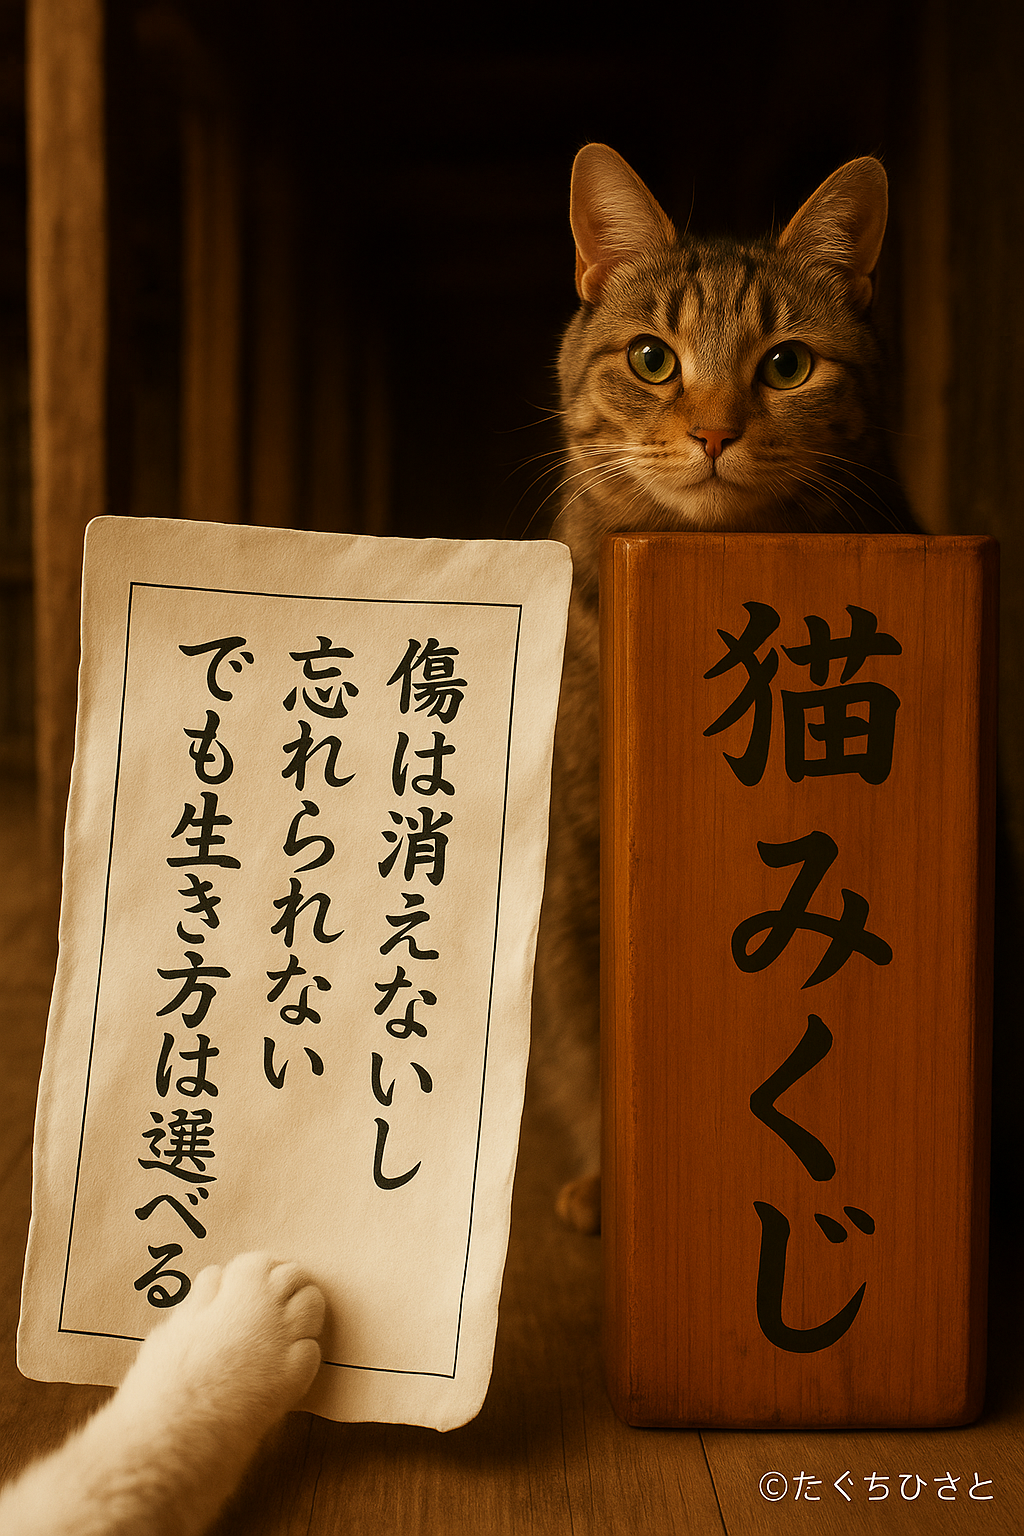 猫みくじ
傷は消えないし
忘れられない
でも生き方は選べる
©たぐちひさと